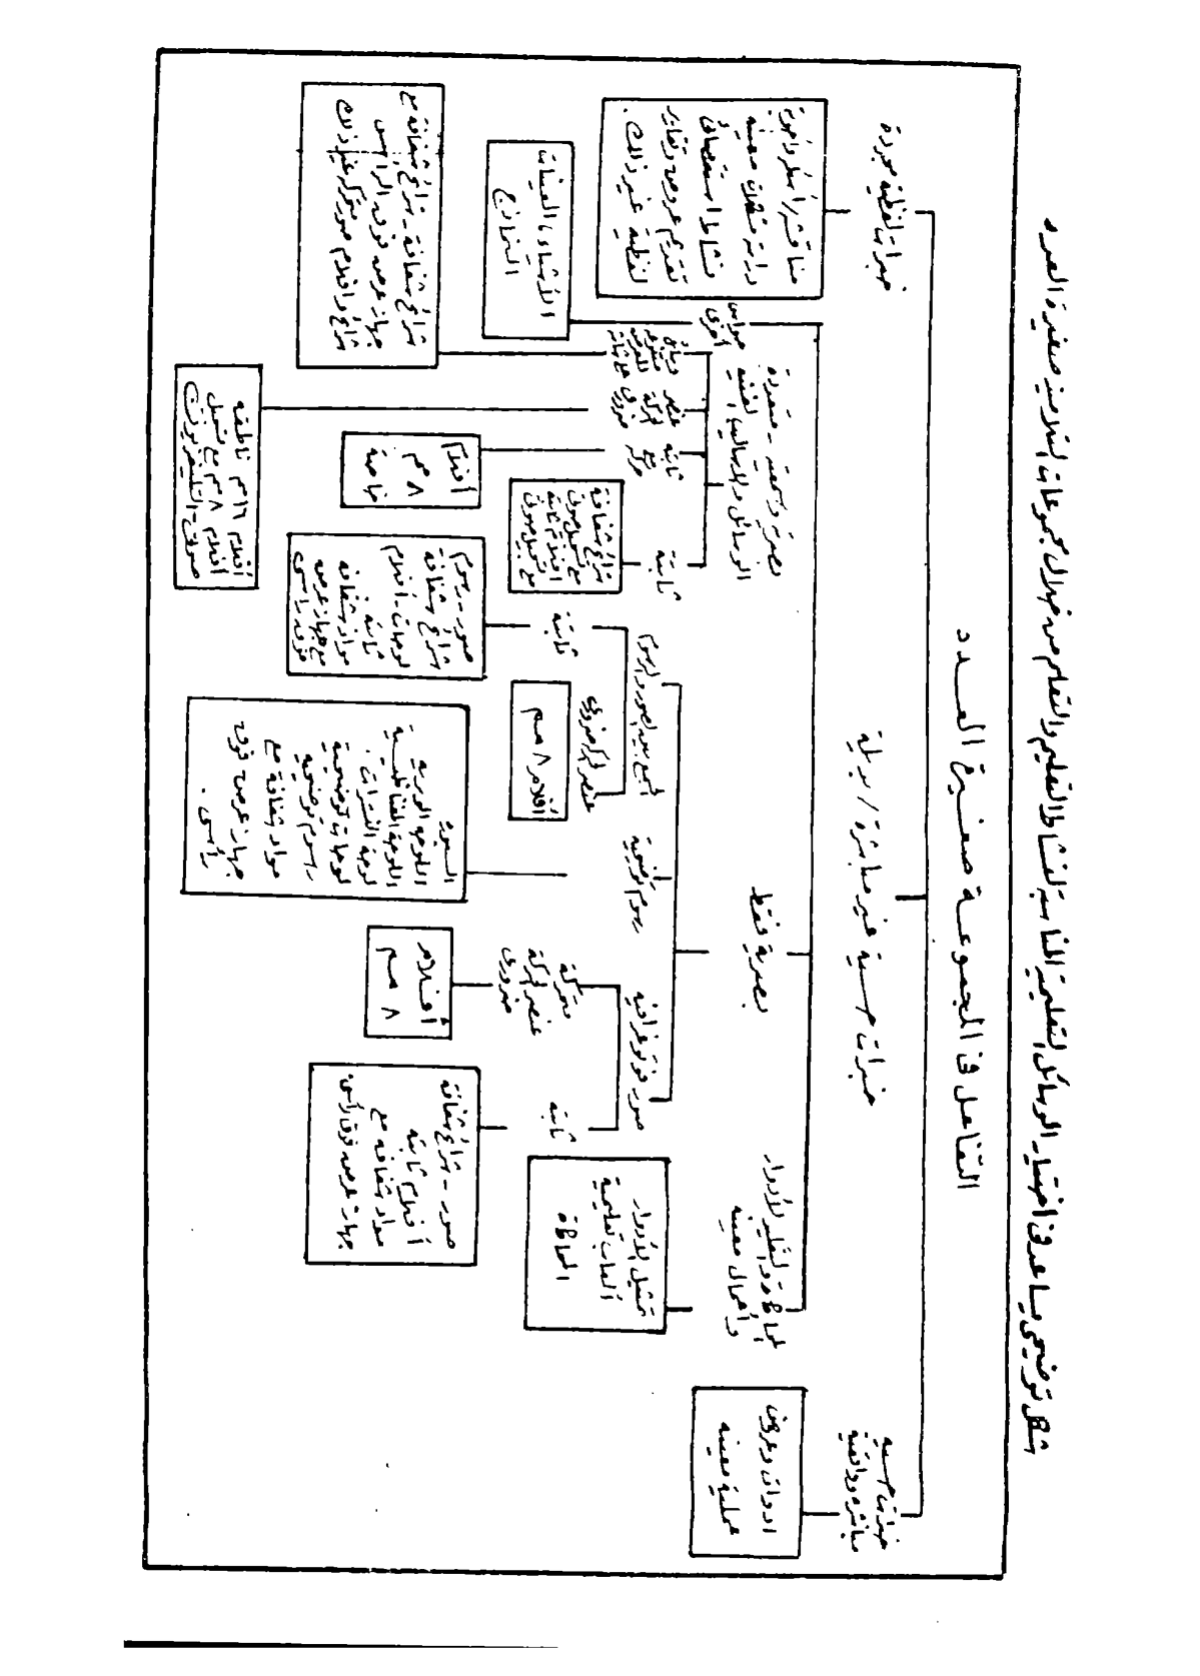 شكل توضيحى يساعد فى اختيار الوسائل التعليمية المناسبة لنشاط التعليم والتعلم من خلال مجموعات التلاميذ صغيرة العدد
التفاعل فى المجموعة صغيرة العدد
خبرات حسية
مباشرة وواقعية
أدوات وعروض
عملية معينة
خبرات حسية غير مباشرة / بديلة
وأعمال معينة
تمثيل الأدوار
ألعاب تعليمية
المحاكاة
بصرية فقط
صور فوتوغرافية
ثابتة
صور - شرائح شفافة
أفلام ثابتة
مواد شفافة مع
جهاز عرض فوق رأسى.
متحركة
عنصر الحركة
ضرورى
أفلام
٨ مم
رسوم توضيحية
السبورة
اللوحة الوبرية
لوحة النشرات.
لوحات توضيحية
رسوم توضيحية
مواد شفافة مع
جهاز عرض فوق
رأسى.
الجمع بين الصور والرسوم
عنصر الحركة ضرورى
أفلام ٨ مم
ثابتة
صور - رسوم
شرائح شفافة
لوحات - أفلام
ثابتة
مواد شفافة
مع جهاز عرض
فوق رأسى
بصرية وسمعية - متعددة
ثابتة
شرائح شفافة
مع تسجيل صوتى
أفلام ثابتة
مع تسجيل صوتى
أفلام
٨ مم
عنصر
الحركة
ضرورى
أفلام ١٦ مم ناطقة
أفلام ٨ مم مع تسجيل
صوتى - التليفزيون
شرائح شفافة - شرائح شفافة مع
جهاز عرض فوق الرأس
حواس
أخرى
الأشياء، العينات
النماذج
خبرات لفظية مجردة
مناقشة / أسئلة وأجوبة
دراسة مشكلات معينة
نشاط استقصائى
تقديم عروض وتقارير
لفظية غير ذلك.